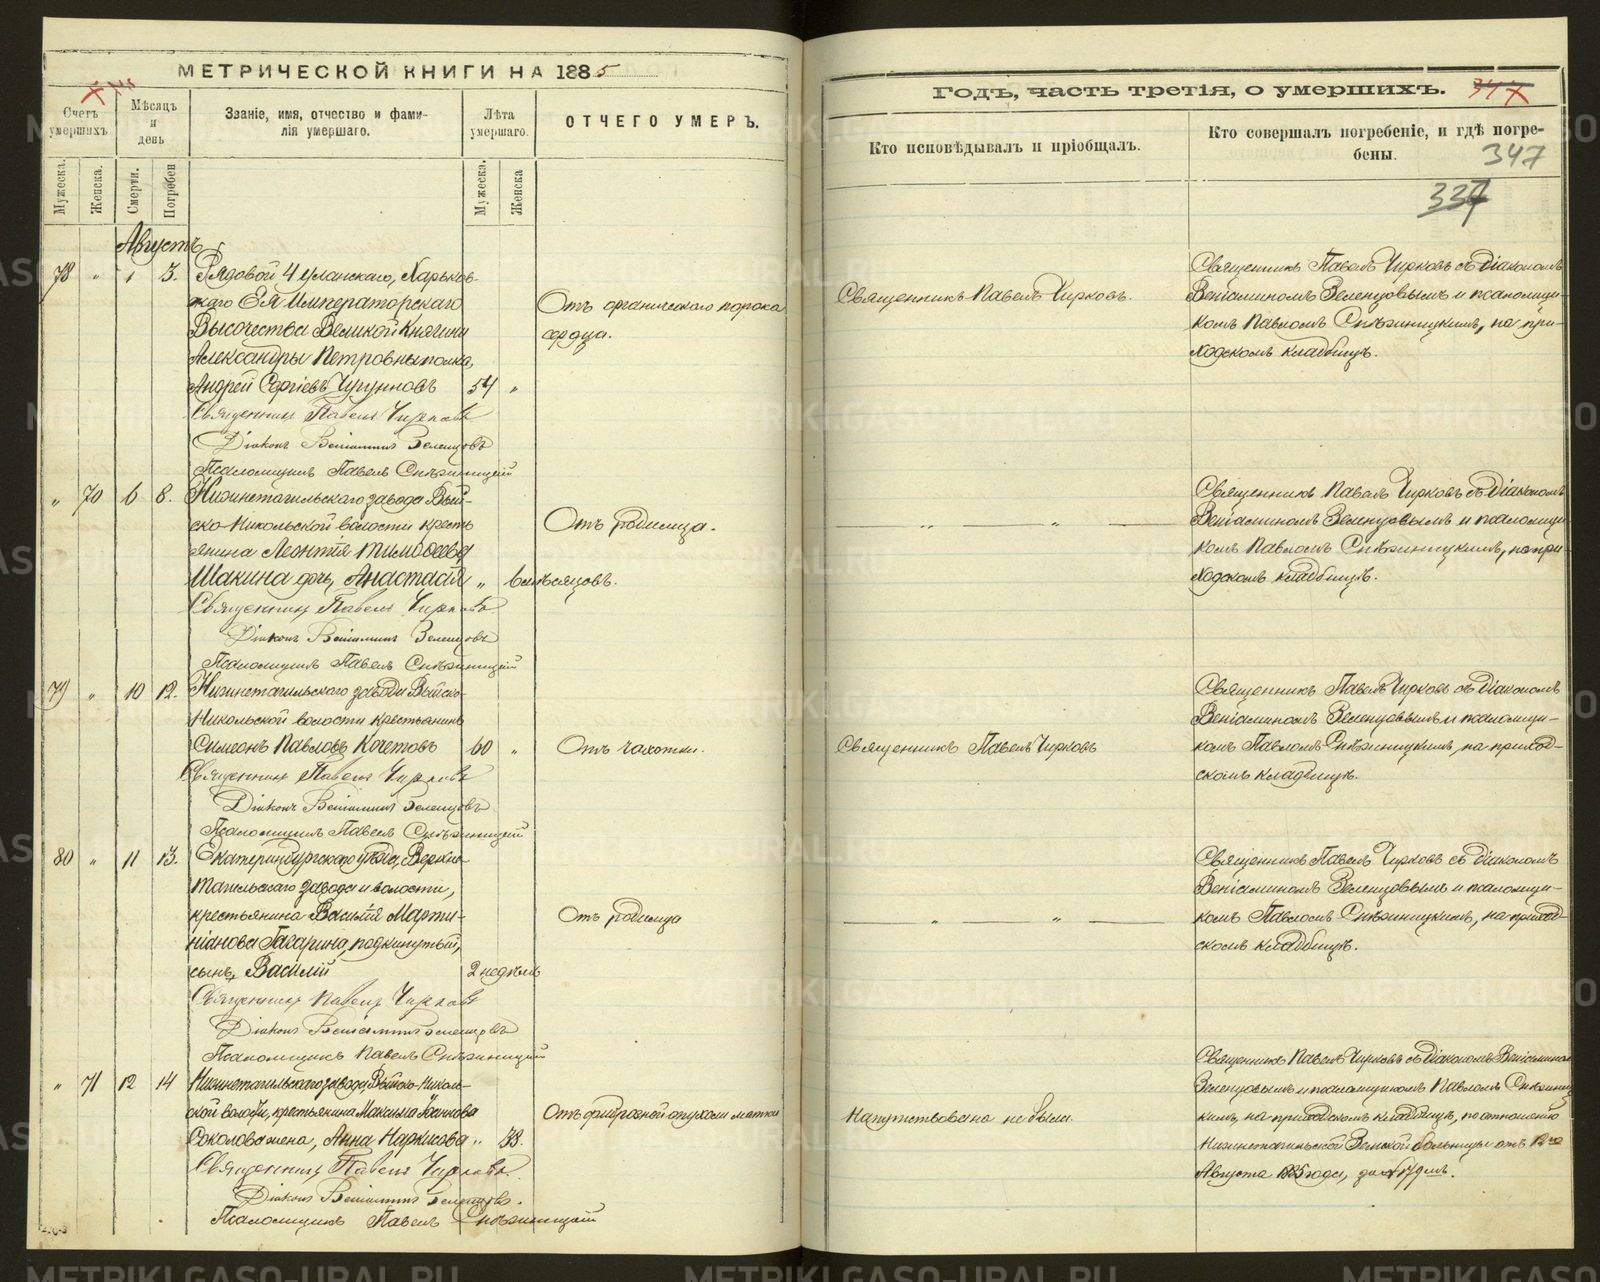 МЕТРИЧЕСКОЙ КНИГИ НА 1885
Счетъ умершихъ
Мѣсяцъ и день
Званіе, имя, отчество и фами-
лія умершаго.
Лѣта умершаго.
ОТЧЕГО УМЕРЪ.
Мужеска.
Женска.
Смерти.
Погребен
Мужеска.
Женска
Августъ
78 " 1 3. Рядовой 4 Уланскаго, Харьков-
скаго Ея Императорскаго
Высочества Великой Княгини
Александры Петровны полка,
Андрей Сергіевъ Чугунновъ 54 "
Отъ органическаго порока
сердца.
Священникъ Павелъ Чирковъ
Діаконъ Веніаминъ Зеленцовъ
Псаломщикъ Павелъ Снѣжницкій
" 70 6 8. Нижнетагильскаго завода Вый-
ско-Никольской волости кресть
янина Леонтія Тимофеева
Шакина дочь, Анастасія " 6 мѣсяцовъ.
Отъ родимца.
Священникъ Павелъ Чирковъ
Діаконъ Веніаминъ Зеленцовъ
Псаломщикъ Павелъ Снѣжницкій
79 " 10 12. Нижнетагильскаго завода Выйско-
Никольской волости крестьянинъ
Симеонъ Павловъ Кочетовъ 60 "
Отъ чахотки.
Священникъ Павелъ Чирковъ
Діаконъ Веніаминъ Зеленцовъ
Псаломщикъ Павелъ Снѣжницкій
80 " 11 13. Екатеринбургскаго уѣзда, Верхне-
тагильскаго завода и волости,
крестьянина Василія Марти-
ніанова Гагарина, подкинутый,
сынъ, Василій 2 недѣль
Отъ родимца
Священникъ Павелъ Чирковъ
Діаконъ Веніаминъ Зеленцовъ
Псаломщикъ Павелъ Снѣжницкій
" 71 12 14 Нижнетагильскаго завода, Выйско-Николь-
ской волости, крестьянина Максима
Соколова жена, Анна Наркисова " 38.
Отъ фиброзной опухоли матки
Священникъ Павелъ Чирковъ.
Діаконъ Веніаминъ Зеленцовъ.
Псаломщикъ Павелъ Снѣжницкій
ГОДЪ, ЧАСТЬ ТРЕТІЯ, О УМЕРШИХЪ.
347
Кто исповѣдывалъ и пріобщалъ.
Кто совершалъ погребеніе, и гдѣ погре-
бены.
347
337
Священникъ Павелъ Чирковъ.
Священникъ Павелъ Чирковъ съ діакономъ
Веніаминомъ Зеленцовымъ и псаломщи-
комъ Павломъ Снѣжницкимъ, на при-
ходскомъ кладбищѣ.
" "
Священникъ Павелъ Чирковъ съ діакономъ
Веніаминомъ Зеленцовымъ и псаломщи-
комъ Павломъ Снѣжницкимъ, на при-
ходскомъ кладбищѣ.
Священникъ Павелъ Чирковъ
Священникъ Павелъ Чирковъ съ діакономъ
Веніаминомъ Зеленцовымъ и псаломщи-
комъ Павломъ Снѣжницкимъ, на приход-
скомъ кладбищѣ.
" "
Священникъ Павелъ Чирковъ съ діакономъ
Веніаминомъ Зеленцовымъ и псаломщи-
комъ Павломъ Снѣжницкимъ, на приход-
скомъ кладбищѣ.
Напутствована не была.
Священникъ Павелъ Чирковъ съ діакономъ Веніаминомъ
Зеленцовымъ и псаломщикомъ Павломъ Снѣжниц
кимъ, на приходскомъ кладбищѣ, по отношенію
Нижнетагильской Земской больницы отъ 12го
Августа 1885 года, за № 179мъ.
METRIKI.GASO-URAL.RU